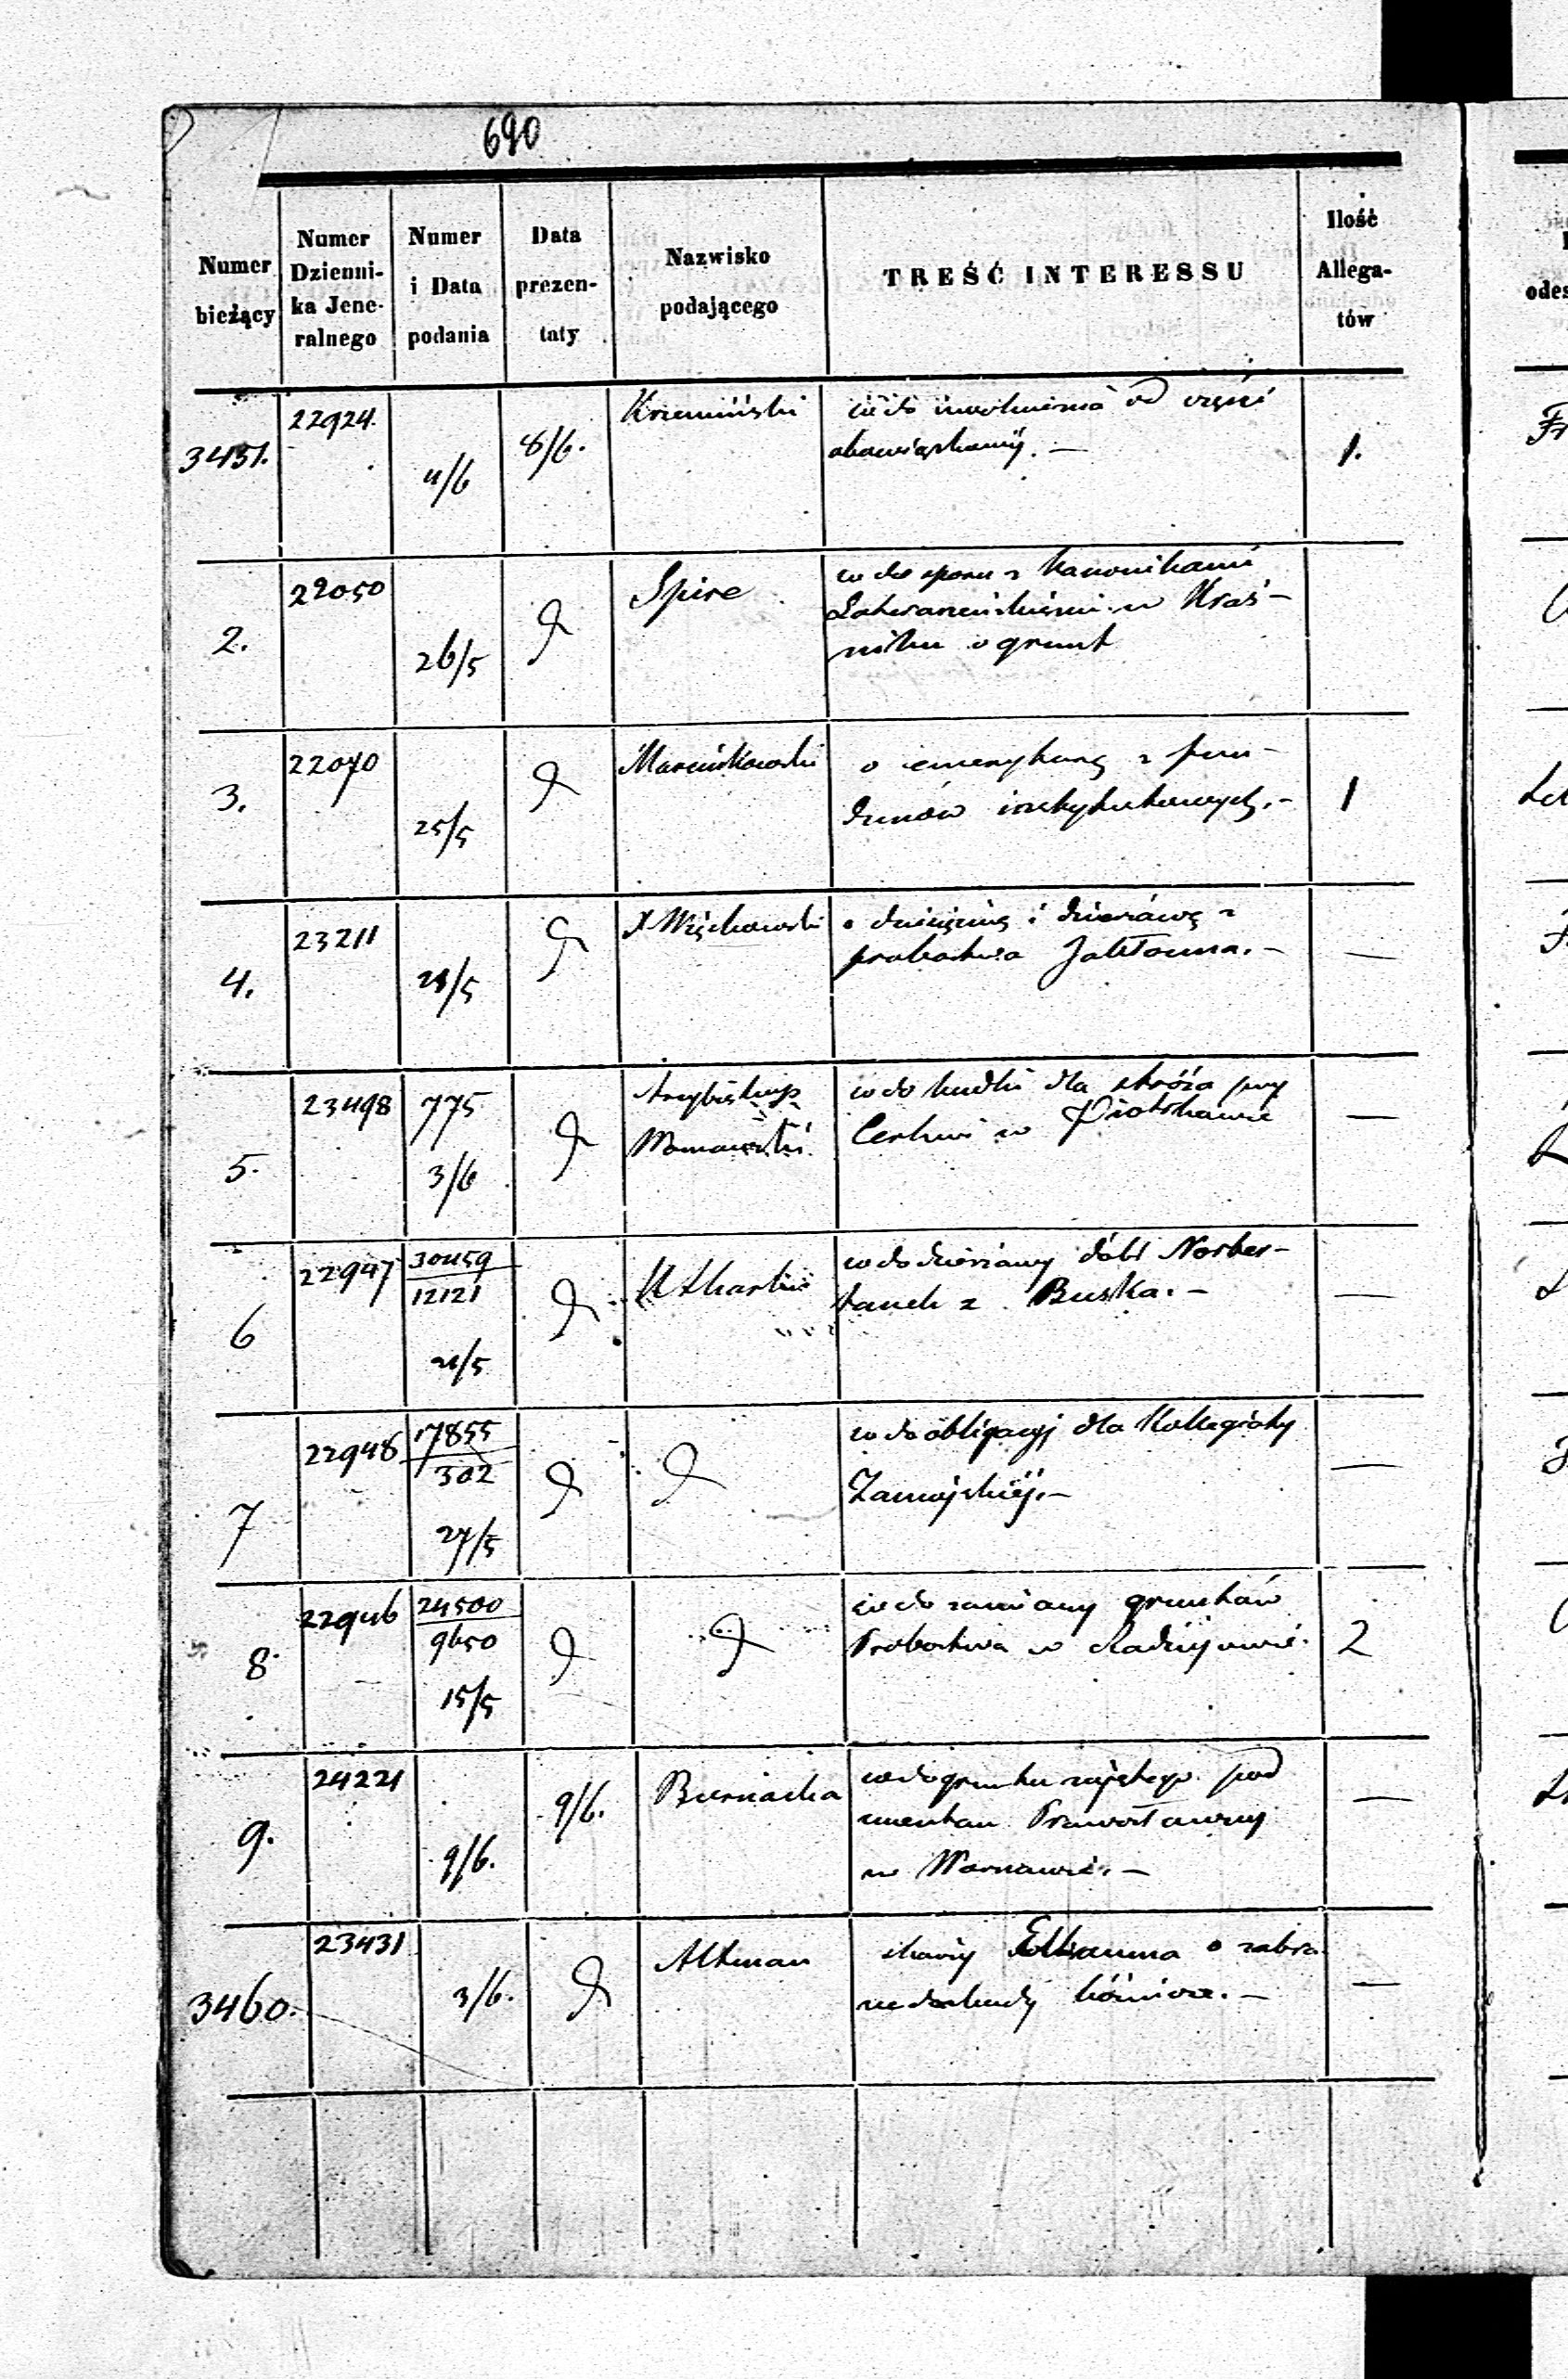 690
Numer bieżący
Numer Dzienni- ka Jene- ralnego
Numer i Data podania
Data prezen- taty
Nazwisko podającego
TREŚĆ INTERESSU
Ilość Allega- tów
3451. 22924. 4/6 8/6. Krzemiński co do uwolnienia od części 1.
obowiązkowej. —
2. 22050 26/5 Spire co do sporu z Kanonikami
Laterańskiemi w Kraś-
niku o grunt
3. 22070 25/5 Marcinkowski o emeryturę z fun- 1
duszów instytutowych. —
4. 23211 21/5 X o dziesięcinę i dzierżawę z —
probostwa Jabłonna. —
5. 23498 775 3/6 Arcybiskup co do budki dla stróża przy —
Warszawski Cerkwi w Piotrkowie
6 22947 30459 12121 21/5 co do dzierżawy dóbr Norber- —
tanek z Buska. —
7 22948 17855 302 27/5 co do obligacyj dla Kollegiaty —
Zamojskiej. —
8. 22946 24500 9650 15/5 co do zamiany gruntów 2
Probostwa w Radziejowie.
9. 24221 9/6. 9/6. Biernacka co do gruntu zajętego pod —
cmentarz Prawosławny
w Warszawie. —
3460. 23431 3/6. Altman skarży o zabra- —
nie